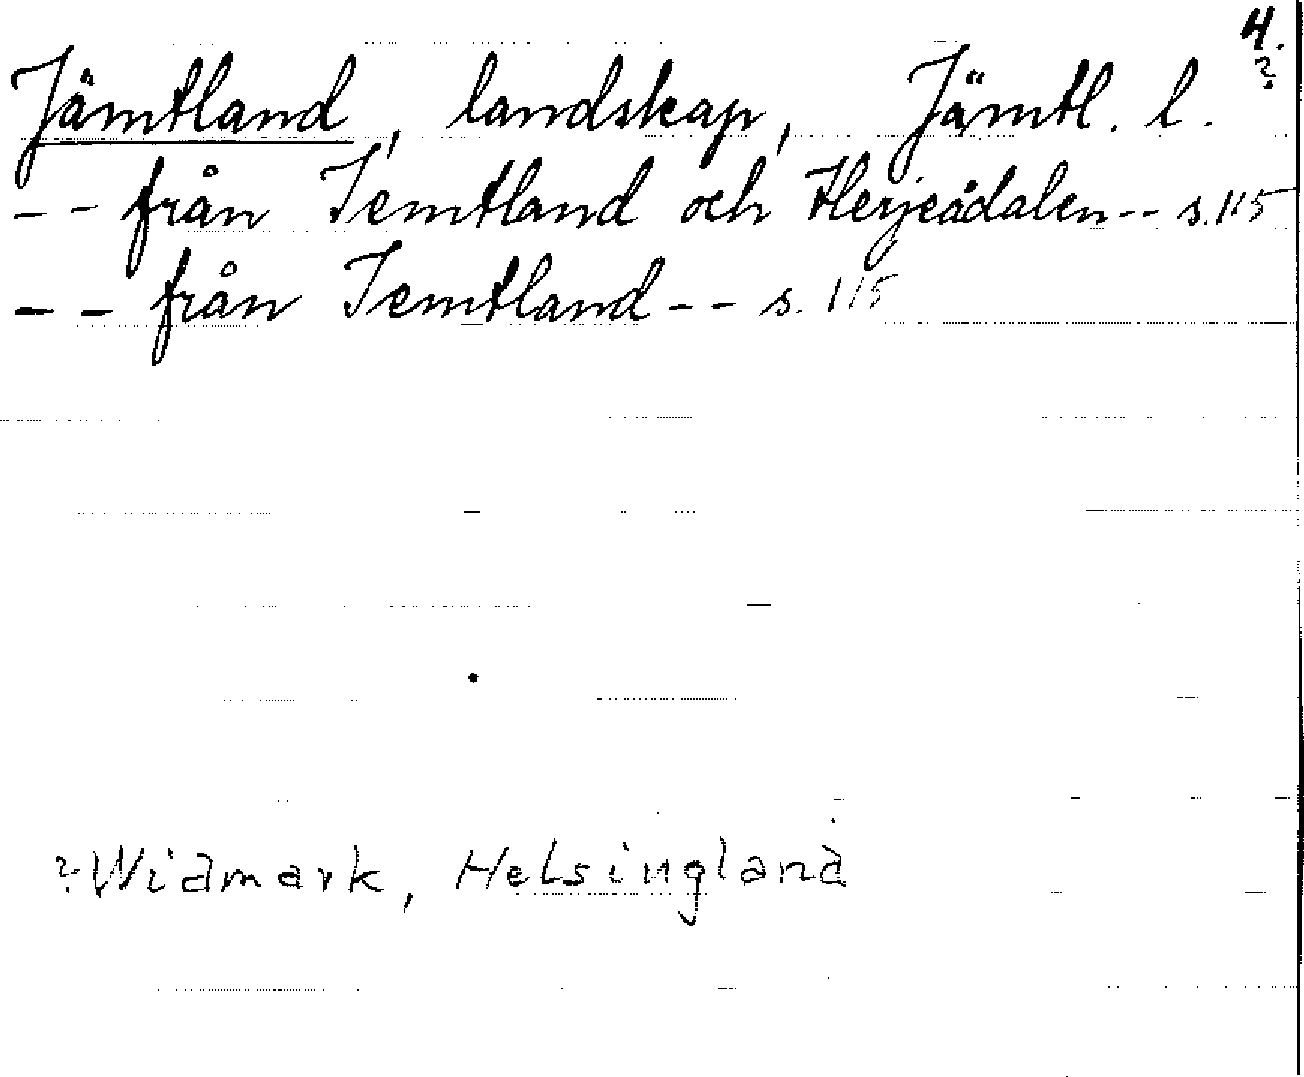 4.
?
Jämtland, landskap, Jämtl. l.
-- från Jemtland och Herjeådalen -- s. 115
-- från Jemtland -- s. 115
? Widmark, Helsingland